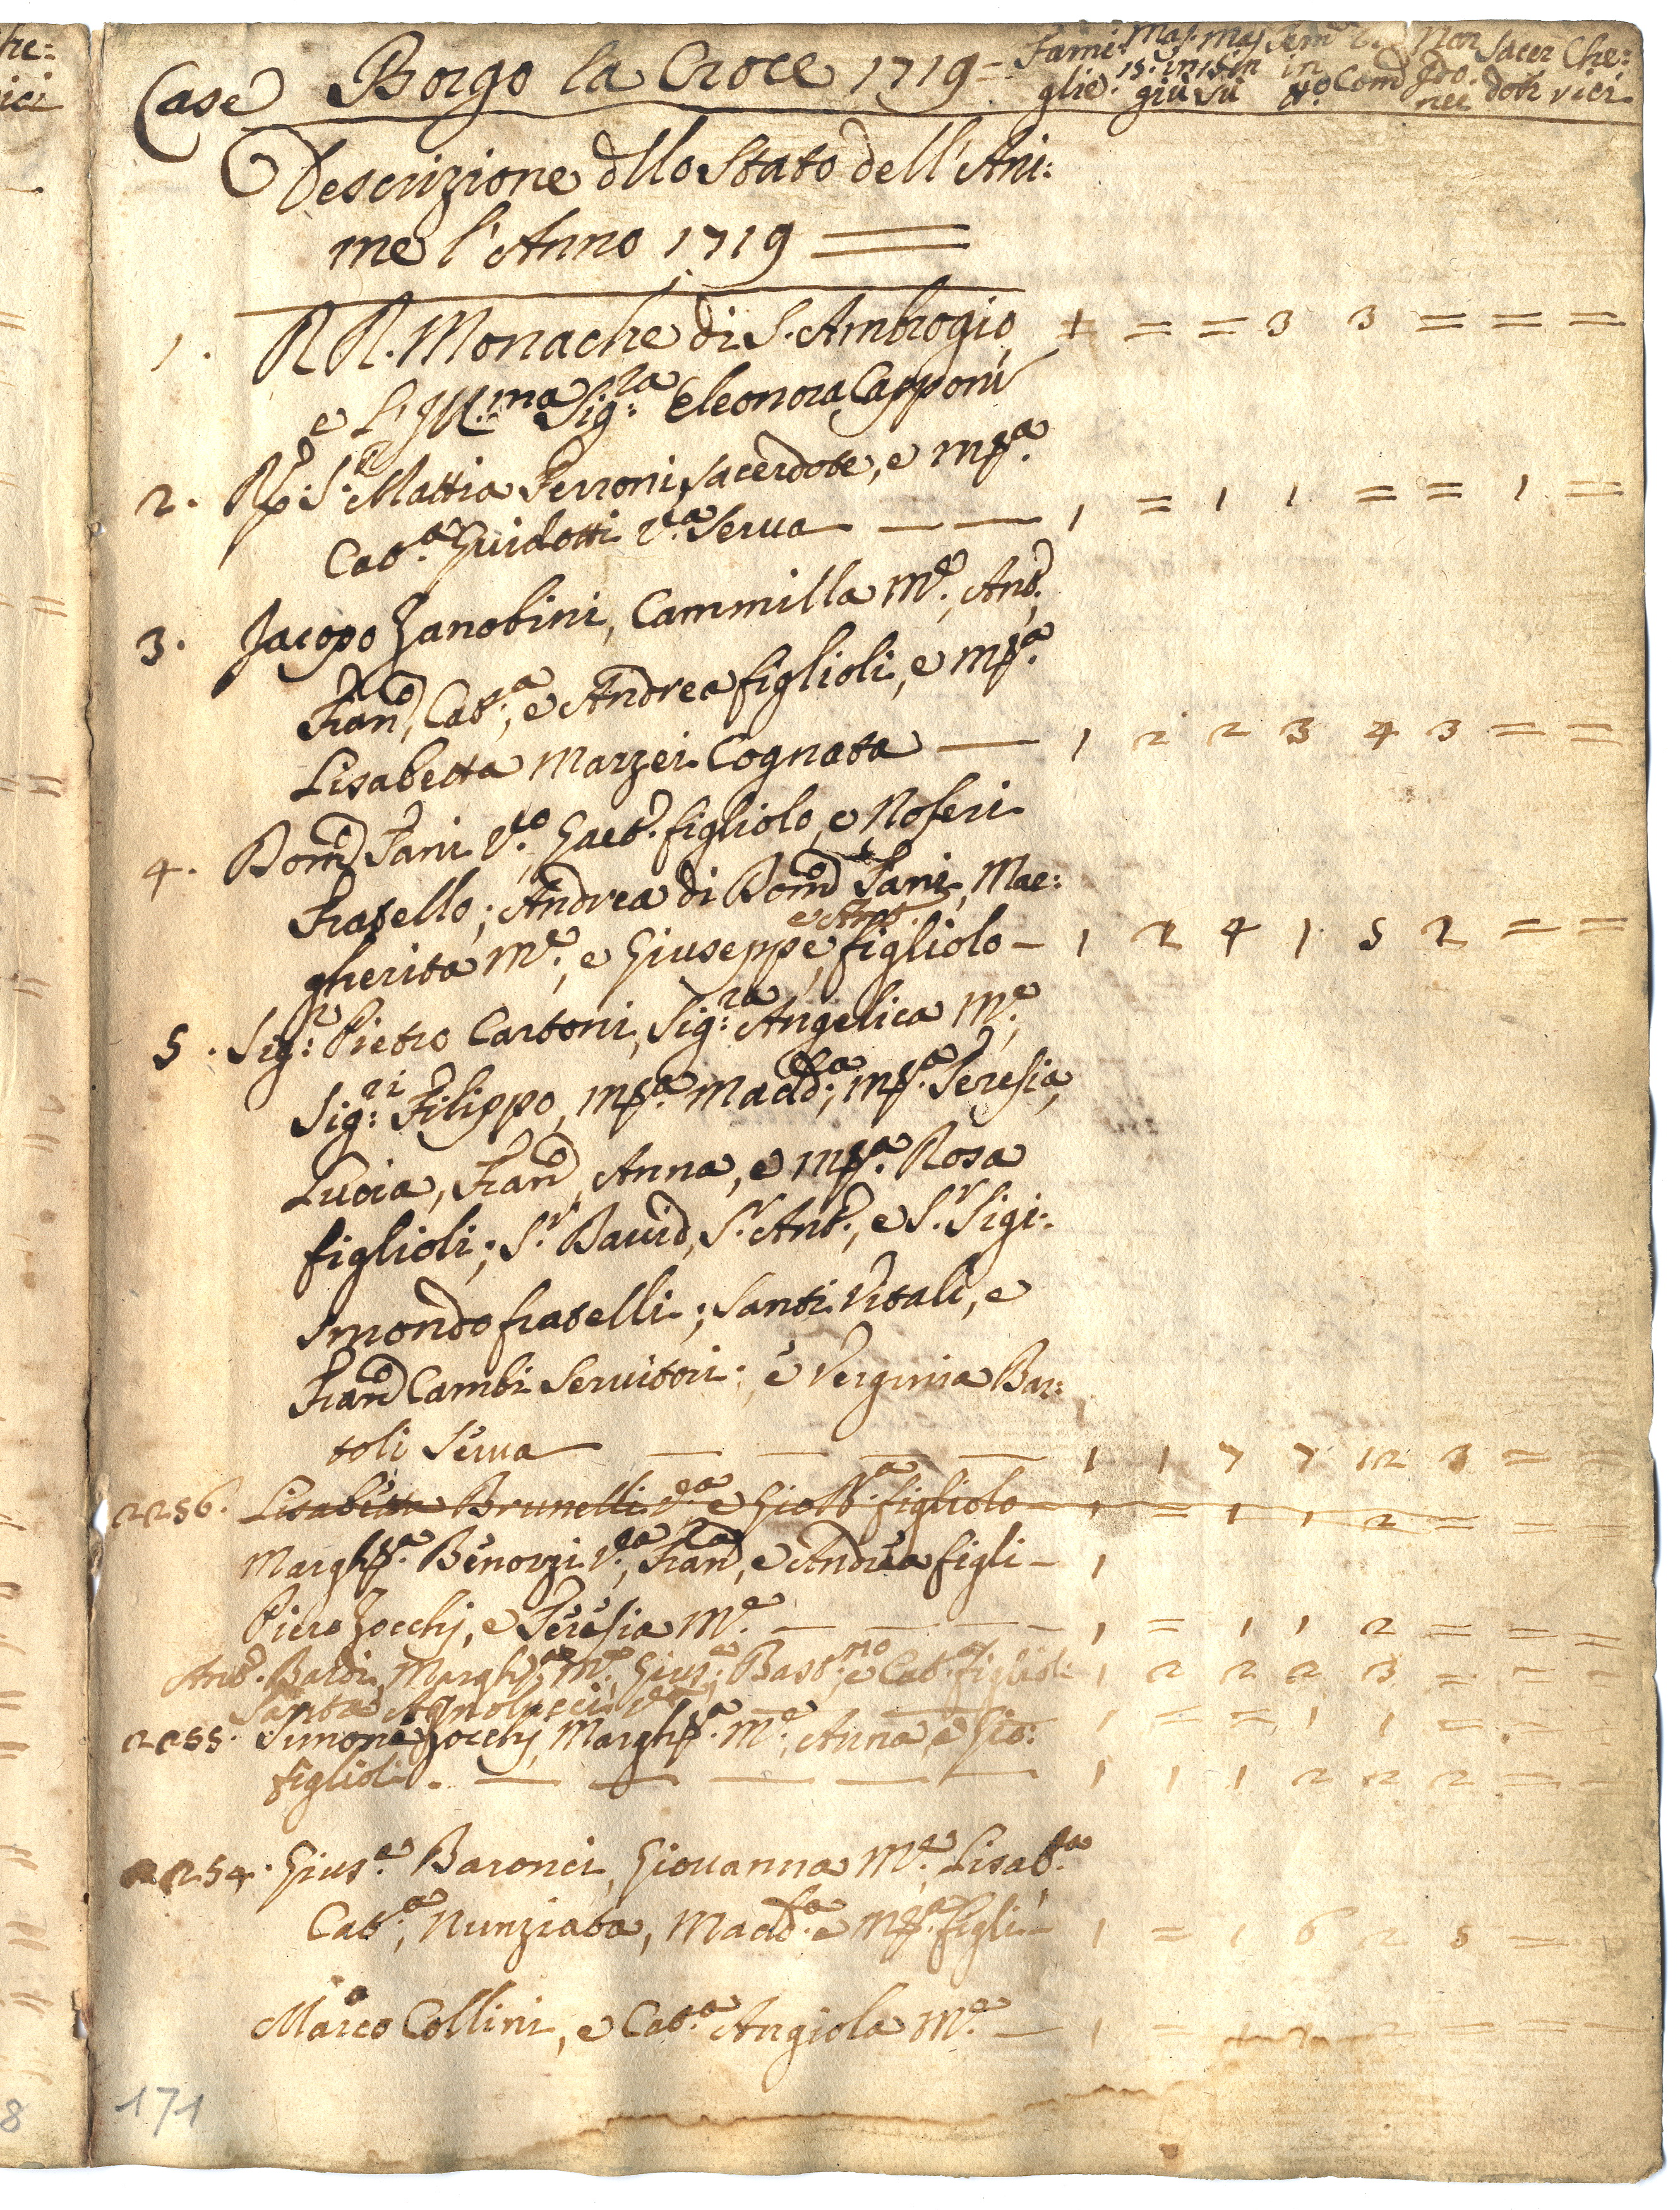 Case Borgo la Croce 1719= Fami: Mas. Mas. Fem Non Sacer Che:
glie. 15. in 15 in in Com Ido. doti rici
giù sù nei
Descrizione dllo Stato dell'Ani:
me l'Anno 1719 ═
1. RR. Monache di S. Ambrogio = = 3 3 = = =
e L'Ill.ma Sig.ra Eleonora Capponi
2. R.P. S.r Mattia Ferroni Sacerdote, e Mª.
Cat.a Guidotti V.a Serua — — 1 = 1 1 = = 1 =
3. Jacopo Zanobini, Cammilla M.e, Ant.,
Fran.co, Cat.a, e Andrea figlioli, e Mª.
Lisabetta Marzei Cognata — 1 2 2 3 4 3 = =
4. Dom.co Fani V.o Gaet. figliolo, e Noferi
Fratello; Andrea di Dom.co Fani, Mar:
e Ant.
gherita M.e, e Giuseppe figliolo – 1 2 4 1 5 2 = =
5. Sig.r Pietro Cartoni, Sig.ra Angelica M.e,
Sig.ri Filippo, Mª. Madd.a, Mª. Teresia,
Lucia, Fran.co, Anna, e Mª. Rosa
figlioli; S.r Dauid, S.r Ant., e S.r Sigi:
smondo fratelli; Santi Vitali, e
Fran.co Cambi Seruitori; e Verginia Bar:
toli Serua — — — — — 1 1 7 7 12 3 = =
2256. Lisabetta Brunetti V.a e Gio B.a figliolo 1 = 1 1 2 = = =
Margh.a Benozzi V.a, Fran.ca, e Andrea figli – 1
Piero Zocchi, e Teresia M.e — — — — 1 = 1 1 2 = = =
Ant. Bardi, Margh.a M.e, Gius.e, Bast.no, e Cat.a figlioli 1 2 2 2 3 = = =
Santa Agnolucci V.a — — 1 = = 1 1 = = =
2255. Simone Zocchi Margh.a M.e, Anna e Gio:
figlioli. — — — — — 1 1 1 2 2 2 = =
2254. Gius.e Baronci, Giouanna M.e, Lisab.a
Cat.a, Nunziata, Madd.a e Mª. figli – 1 = 1 6 2 5 = =
Marco Collini, e Cat.a Angiola M.e — 1 = 2 = = =
171